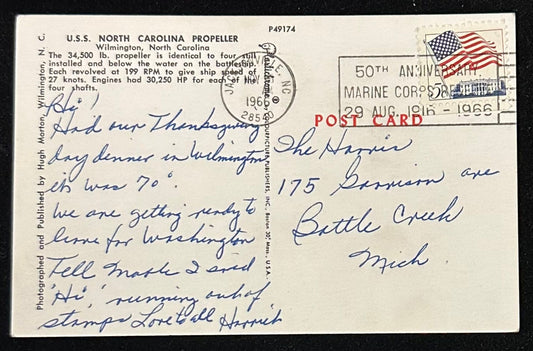 P49174
U.S.S. NORTH CAROLINA PROPELLER
Wilmington, North Carolina
The 34,500 lb. propeller is identical to four still
installed and below the water on the battleship.
Each revolved at 199 RPM to give ship speed of
27 knots. Engines had 30,250 HP for each of the
four shafts.
Hi!
Had our Thanksgiving
day dinner in Wilmington
it was 70°.
We are getting ready to
leave for Washington
Tell I said
"Hi", running out of
stamps Love to all Harriet
Photographed and Published by Hugh Morton, Wilmington, N. C.
PUBLISHERS, INC., Boston 30, Mass., U.S.A.
JACKSONVILLE, NC
1966
28540
50TH ANNIVERSARY
MARINE CORPS RESERVE
29 AUG 1916 - 1966
5c
POST CARD
The Harris
175 Garrison ave
Battle Creek
Mich